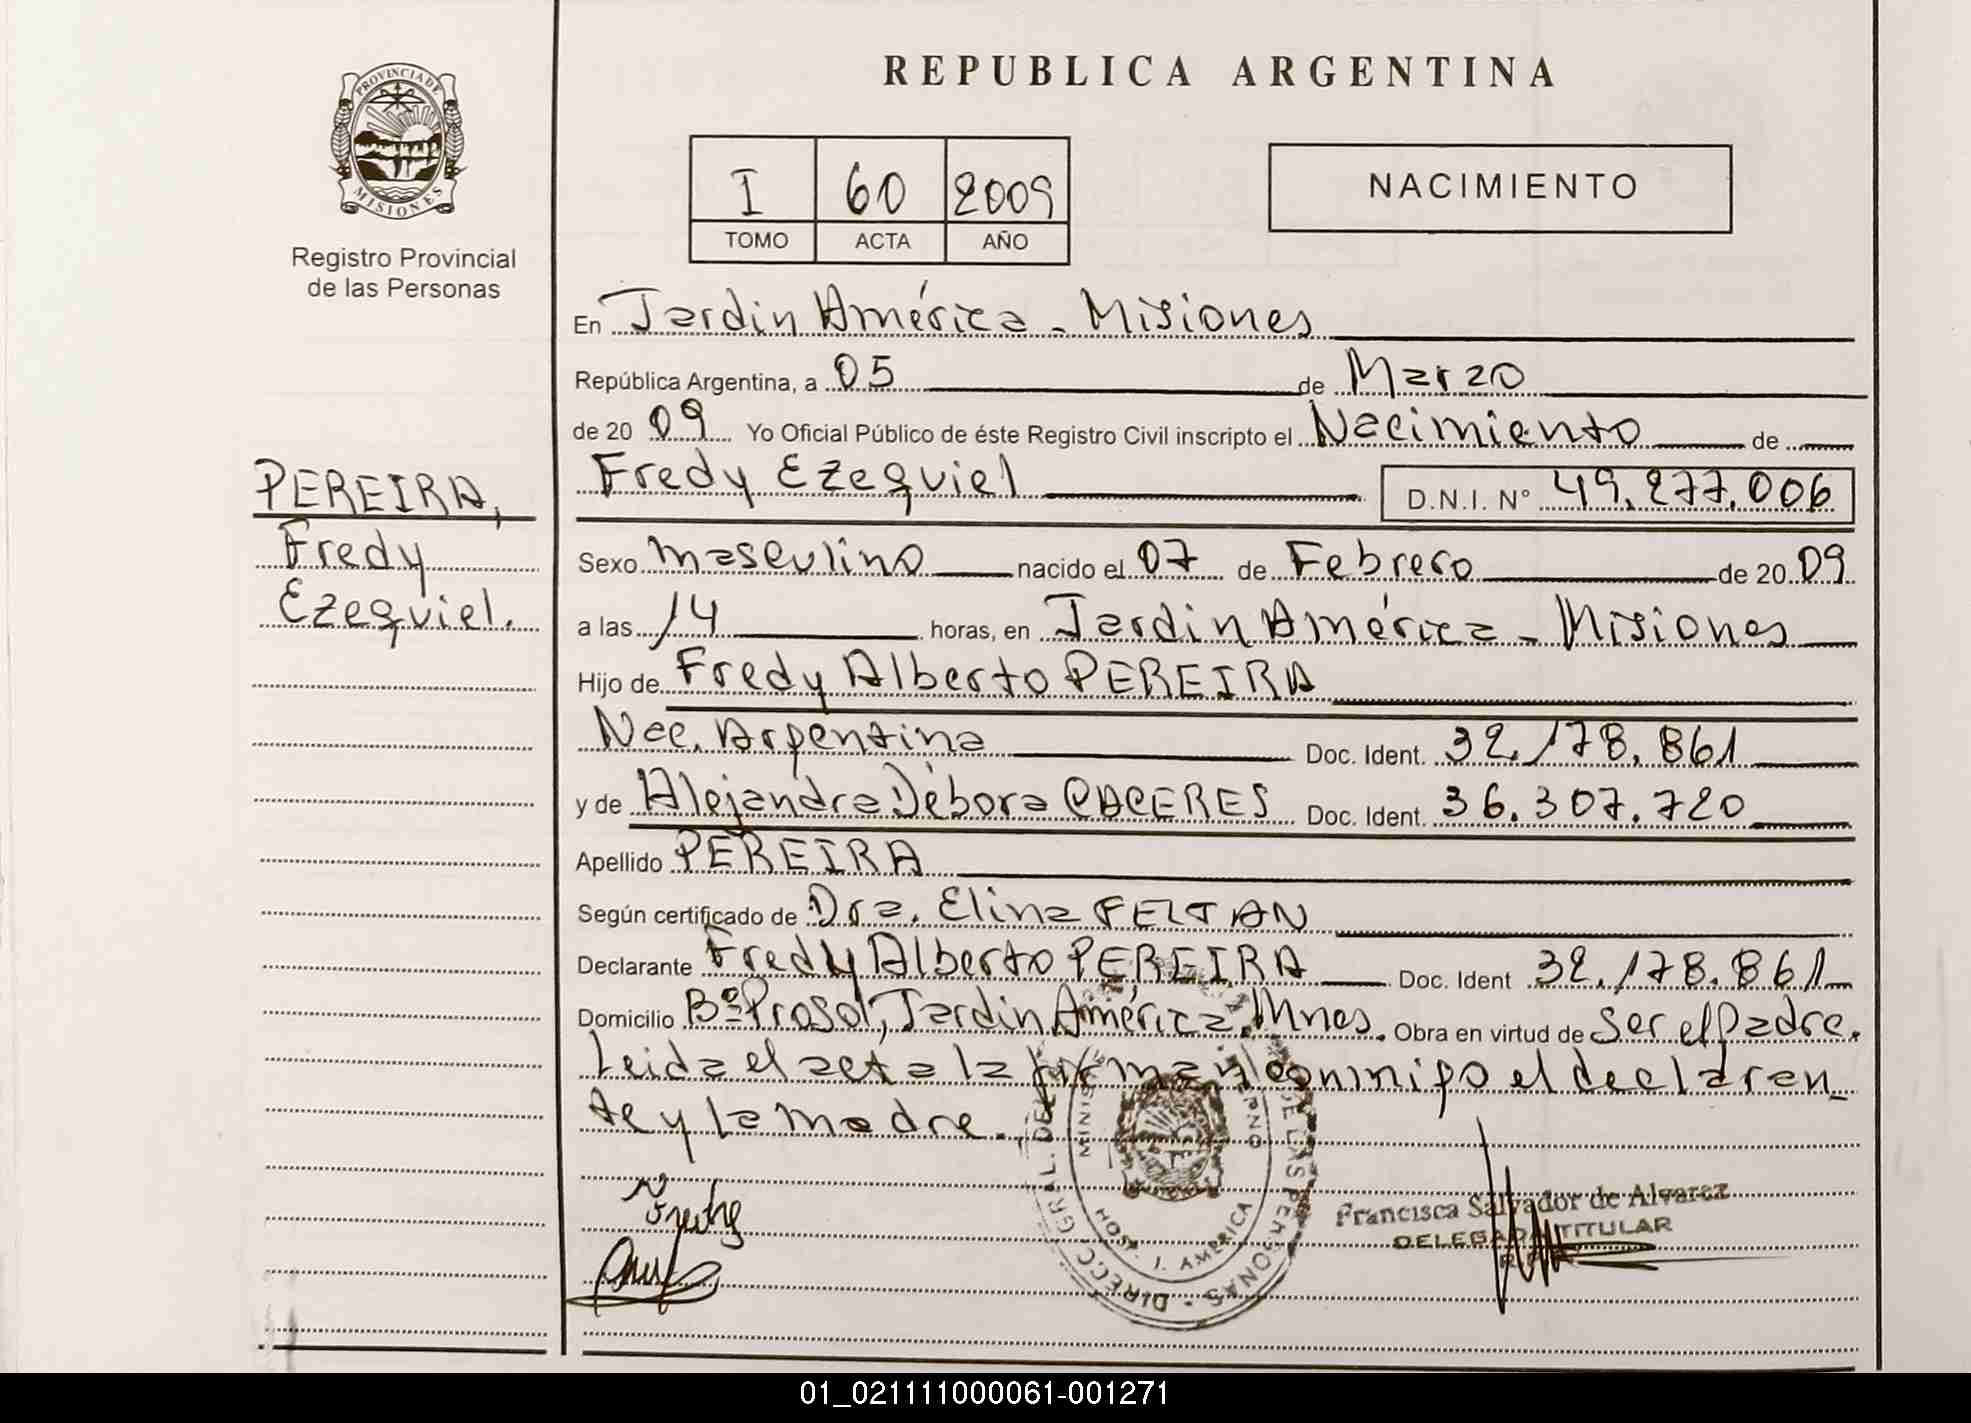 PROVINCIA DE
MISIONES
Registro Provincial
de las Personas
PEREIRA,
Fredy
Ezequiel.
REPUBLICA ARGENTINA
I 60 2009
TOMO ACTA AÑO
NACIMIENTO
En Jardin América - Misiones
República Argentina, a 05 de Marzo
de 20 09 Yo Oficial Público de éste Registro Civil inscripto el Nacimiento de
Fredy Ezequiel D.N.I. N° 49.277.006
Sexo masculino nacido el 07 de Febrero de 20 09
a las 14 horas, en Jardin América - Misiones
Hijo de Fredy Alberto PEREIRA
Nac. Argentina Doc. Ident. 32.178.861
y de Alejandra Débora CACERES Doc. Ident. 36.307.720
Apellido PEREIRA
Según certificado de Dra. Elina FELTAN
Declarante Fredy Alberto PEREIRA Doc. Ident 32.178.861
Domicilio Bº Prosol, Jardin América, Mnes. Obra en virtud de ser el padre.
Leida el acta la firman conmigo el declaran
te y la madre.
DIRECC. GRAL. DE LAS PERSONAS
HOSP. J. AMERICA
Fredy
Francisca Salvador de Alvarez
DELEGADA TITULAR
01_021111000061-001271